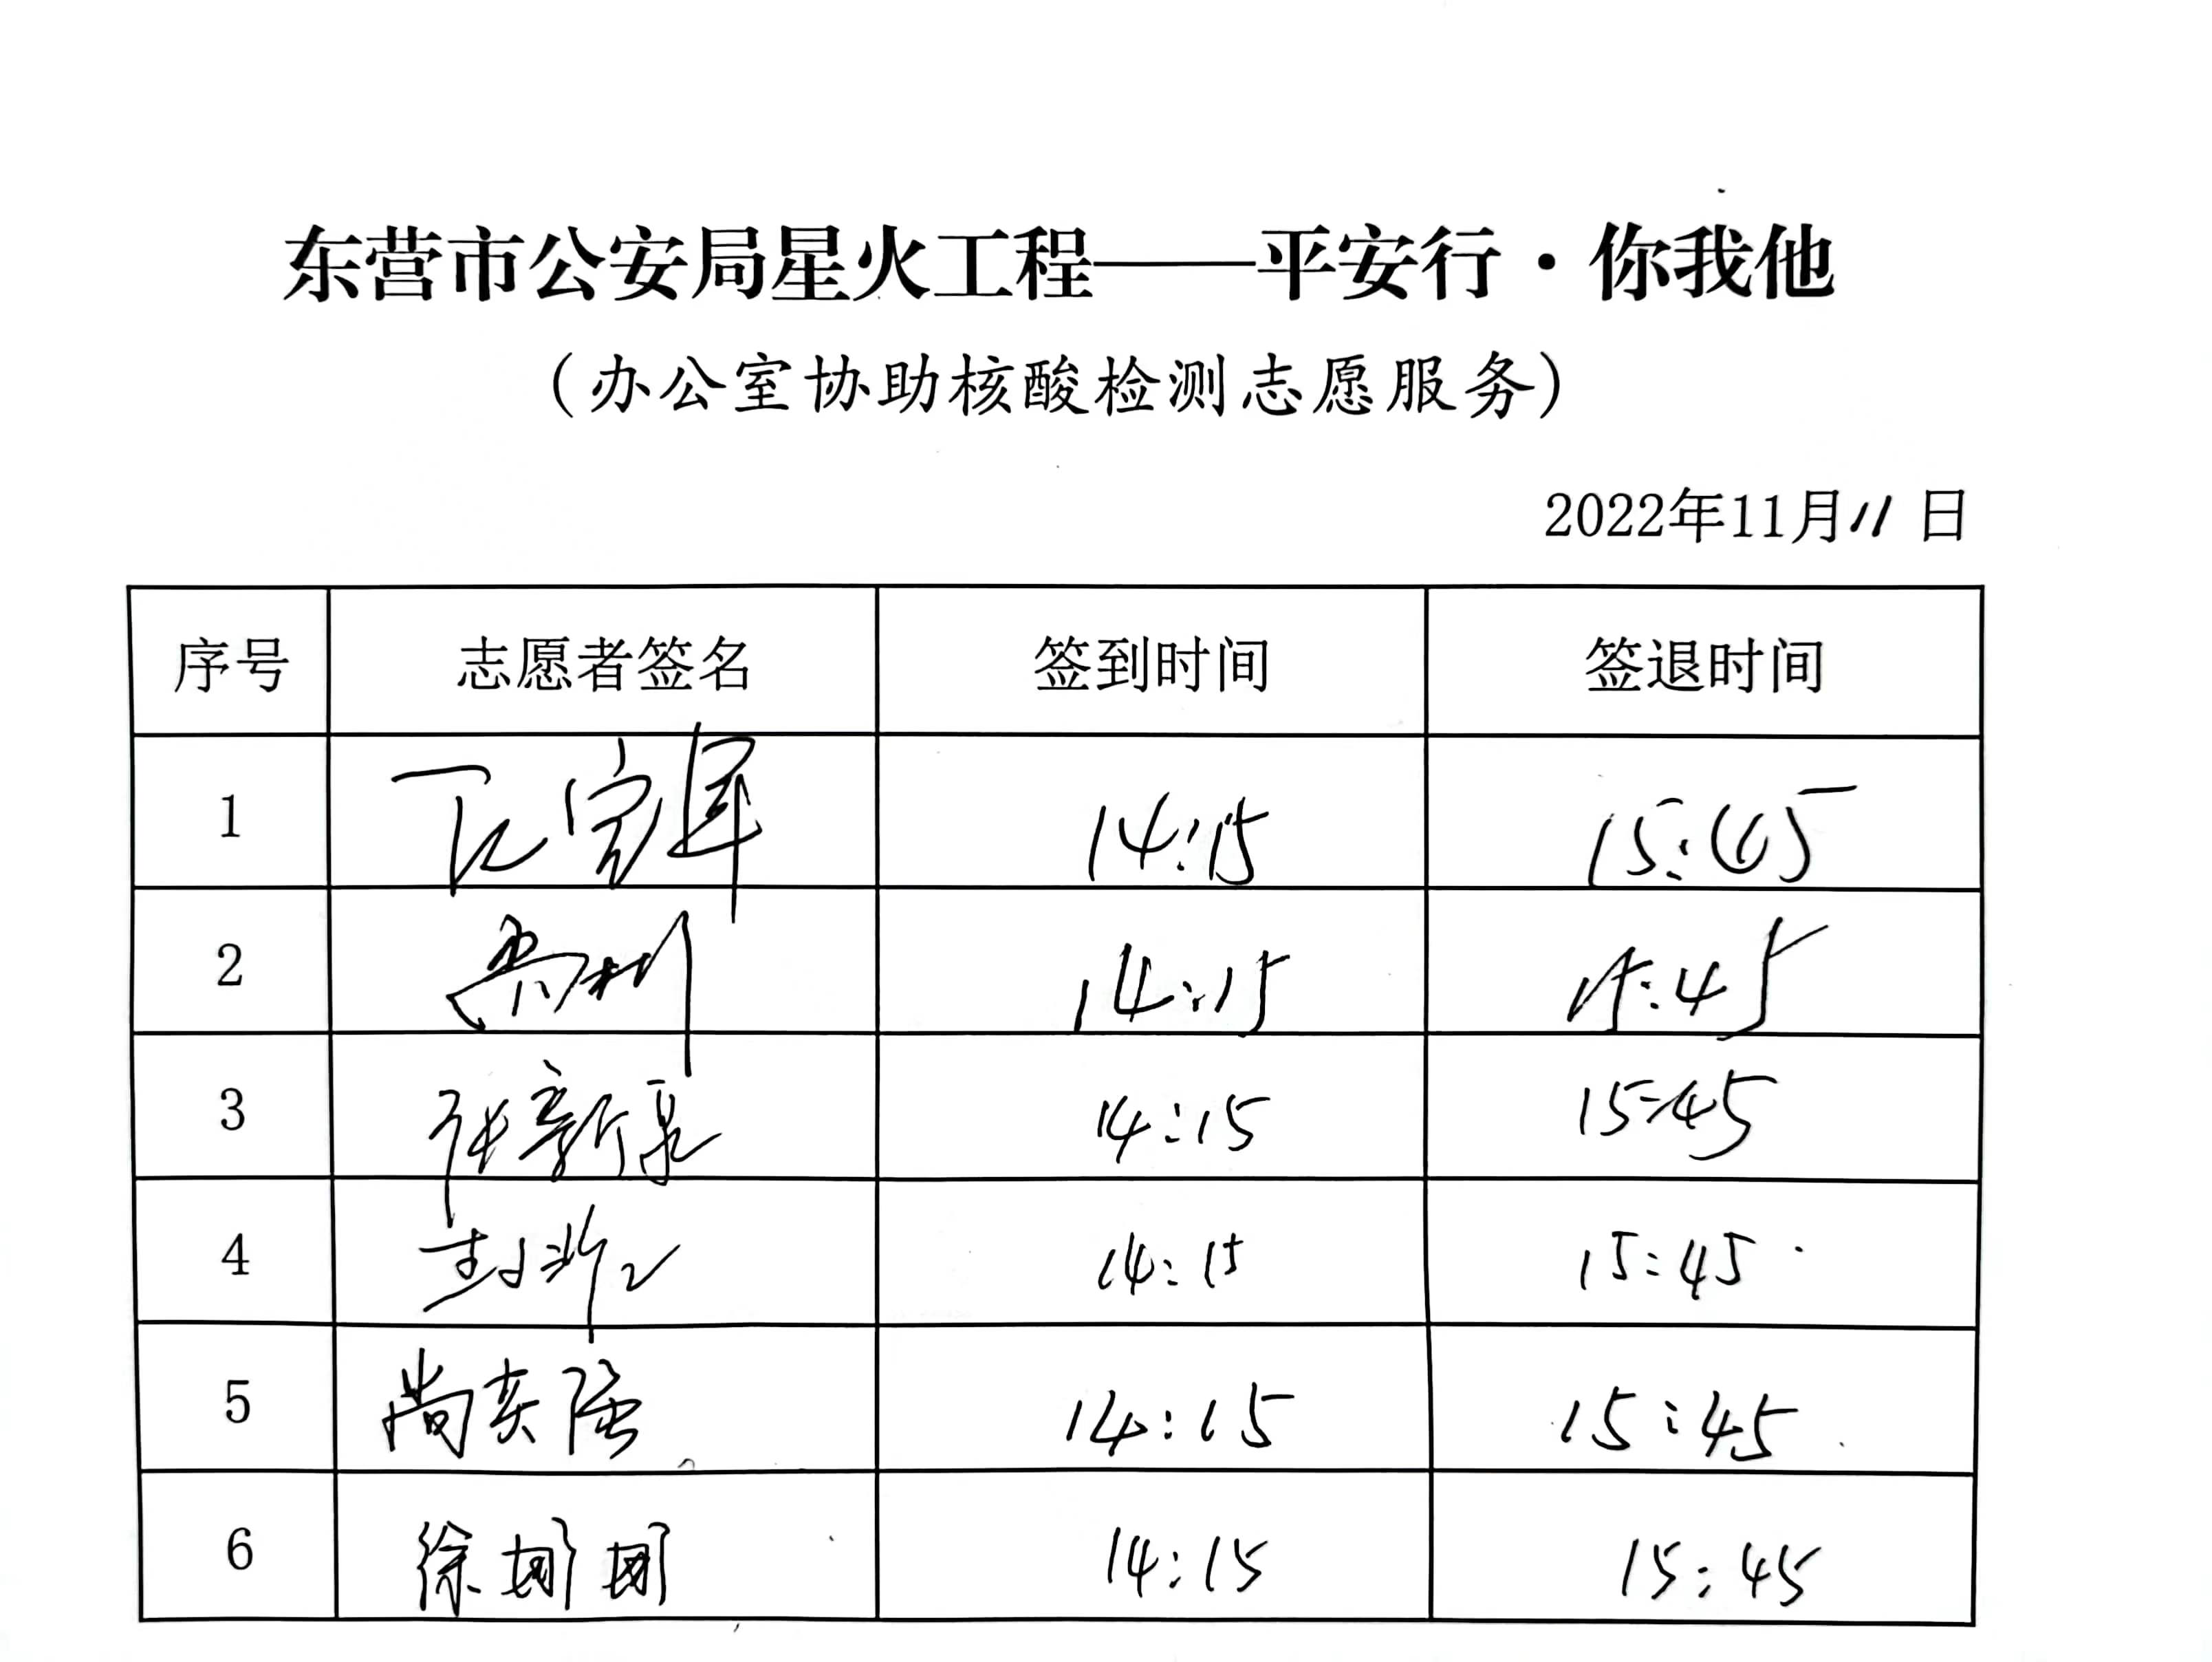 东营市公安局星火工程——平安行·你我他
（办公室协助核酸检测志愿服务）
2022年11月11日
序号 志愿者签名 签到时间 签退时间
1 14:15 15:45
2 14:15 15:45
3 张新泉 14:15 15:45
4 14:15 15:45
5 尚东隆 14:15 15:45
6 徐姗姗 14:15 15:45